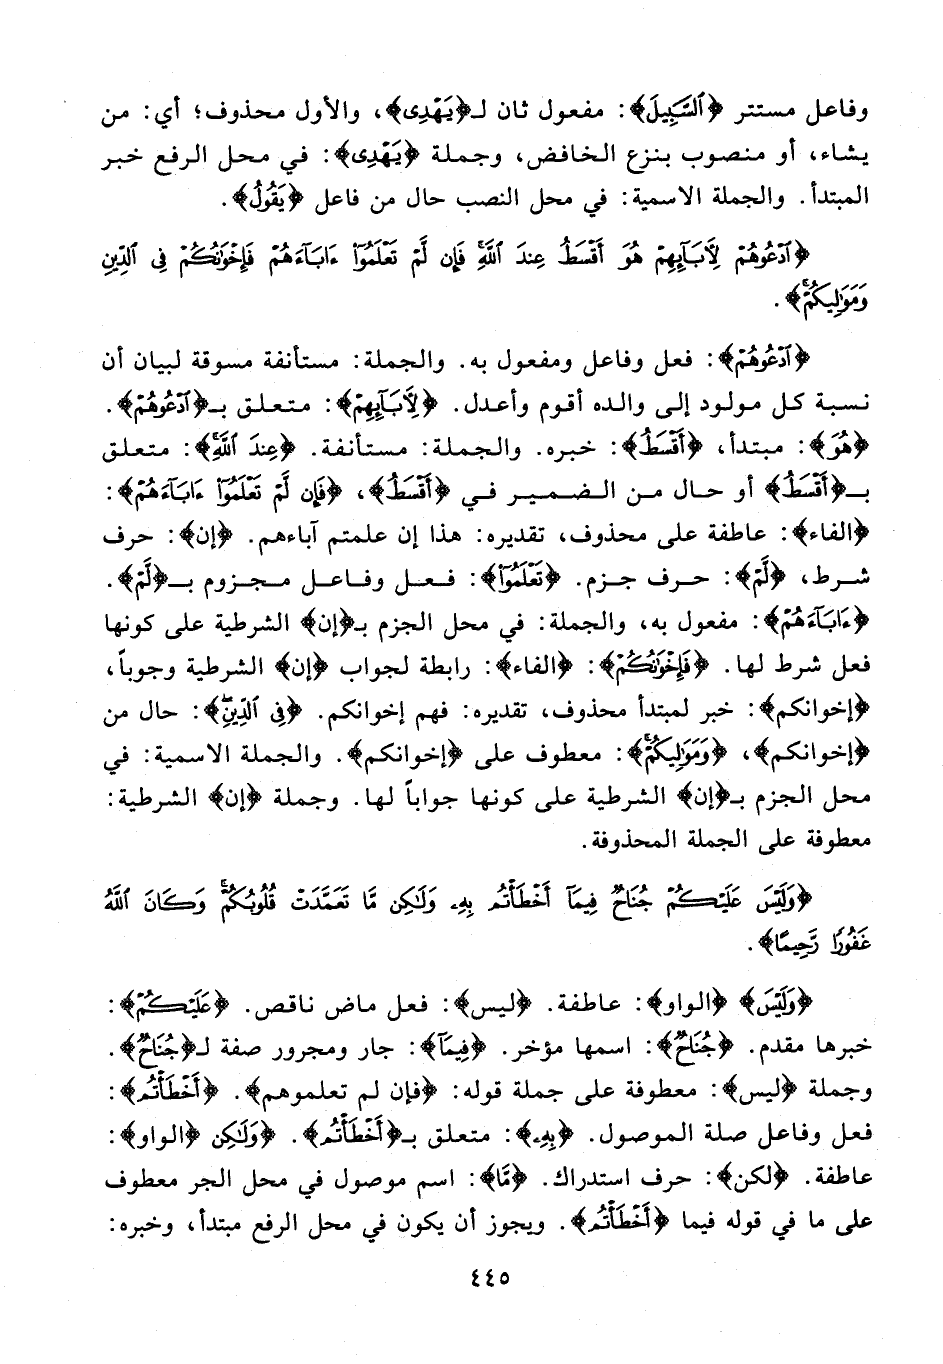 وفاعل مستتر ﴿ٱلسَّبِيلَ﴾: مفعول ثان لـ﴿يَهْدِى﴾، والأول محذوف؛ أي: من
يشاء، أو منصوب بنزع الخافض، وجملة ﴿يَهْدِى﴾: في محل الرفع خبر
المبتدأ. والجملة الاسمية: في محل النصب حال من فاعل ﴿يَقُولُ﴾.
﴿ٱدْعُوهُمْ لِأَبَآئِهِمْ هُوَ أَقْسَطُ عِندَ ٱللَّهِ فَإِن لَّمْ تَعْلَمُوٓا۟ ءَابَآءَهُمْ فَإِخْوَٰنُكُمْ فِى ٱلدِّينِ
وَمَوَٰلِيكُمْ﴾.
﴿ٱدْعُوهُمْ﴾: فعل وفاعل ومفعول به. والجملة: مستأنفة مسوقة لبيان أن
نسبة كل مولود إلى والده أقوم وأعدل. ﴿لِأَبَآئِهِمْ﴾: متعلق بـ﴿ٱدْعُوهُمْ﴾.
﴿هُوَ﴾: مبتدأ، ﴿أَقْسَطُ﴾: خبره. والجملة: مستأنفة. ﴿عِندَ ٱللَّهِ﴾: متعلق
بـ﴿أَقْسَطُ﴾ أو حال من الضمير في ﴿أَقْسَطُ﴾، ﴿فَإِن لَّمْ تَعْلَمُوٓا۟ ءَابَآءَهُمْ﴾:
﴿الفاء﴾: عاطفة على محذوف، تقديره: هذا إن علمتم آباءهم. ﴿إن﴾: حرف
شرط، ﴿لَّمْ﴾: حرف جزم. ﴿تَعْلَمُوٓا۟﴾: فعل وفاعل مجزوم بـ﴿لَّمْ﴾.
﴿ءَابَآءَهُمْ﴾: مفعول به، والجملة: في محل الجزم بـ﴿إن﴾ الشرطية على كونها
فعل شرط لها. ﴿فَإِخْوَٰنُكُمْ﴾: ﴿الفاء﴾: رابطة لجواب ﴿إن﴾ الشرطية وجوباً،
﴿إخوانكم﴾: خبر لمبتدأ محذوف، تقديره: فهم إخوانكم. ﴿فِى ٱلدِّينِ﴾: حال من
﴿إخوانكم﴾، ﴿وَمَوَٰلِيكُمْ﴾: معطوف على ﴿إخوانكم﴾. والجملة الاسمية: في
محل الجزم بـ﴿إن﴾ الشرطية على كونها جواباً لها. وجملة ﴿إن﴾ الشرطية:
معطوفة على الجملة المحذوفة.
﴿وَلَيْسَ عَلَيْكُمْ جُنَاحٌ فِيمَآ أَخْطَأْتُم بِهِۦ وَلَٰكِن مَّا تَعَمَّدَتْ قُلُوبُكُمْ وَكَانَ ٱللَّهُ
غَفُورًا رَّحِيمًا﴾.
﴿وَلَيْسَ﴾ ﴿الواو﴾: عاطفة. ﴿ليس﴾: فعل ماض ناقص. ﴿عَلَيْكُمْ﴾:
خبرها مقدم. ﴿جُنَاحٌ﴾: اسمها مؤخر. ﴿فِيمَآ﴾: جار ومجرور صفة لـ﴿جُنَاحٌ﴾.
وجملة ﴿ليس﴾: معطوفة على جملة قوله: ﴿فإن لم تعلموهم﴾. ﴿أَخْطَأْتُم﴾:
فعل وفاعل صلة الموصول. ﴿بِهِۦ﴾: متعلق بـ﴿أَخْطَأْتُم﴾. ﴿وَلَٰكِن ﴿الواو﴾:
عاطفة. ﴿لكن﴾: حرف استدراك. ﴿مَّا﴾: اسم موصول في محل الجر معطوف
على ما في قوله فيما ﴿أَخْطَأْتُم﴾. ويجوز أن يكون في محل الرفع مبتدأ، وخبره:
٤٤٥